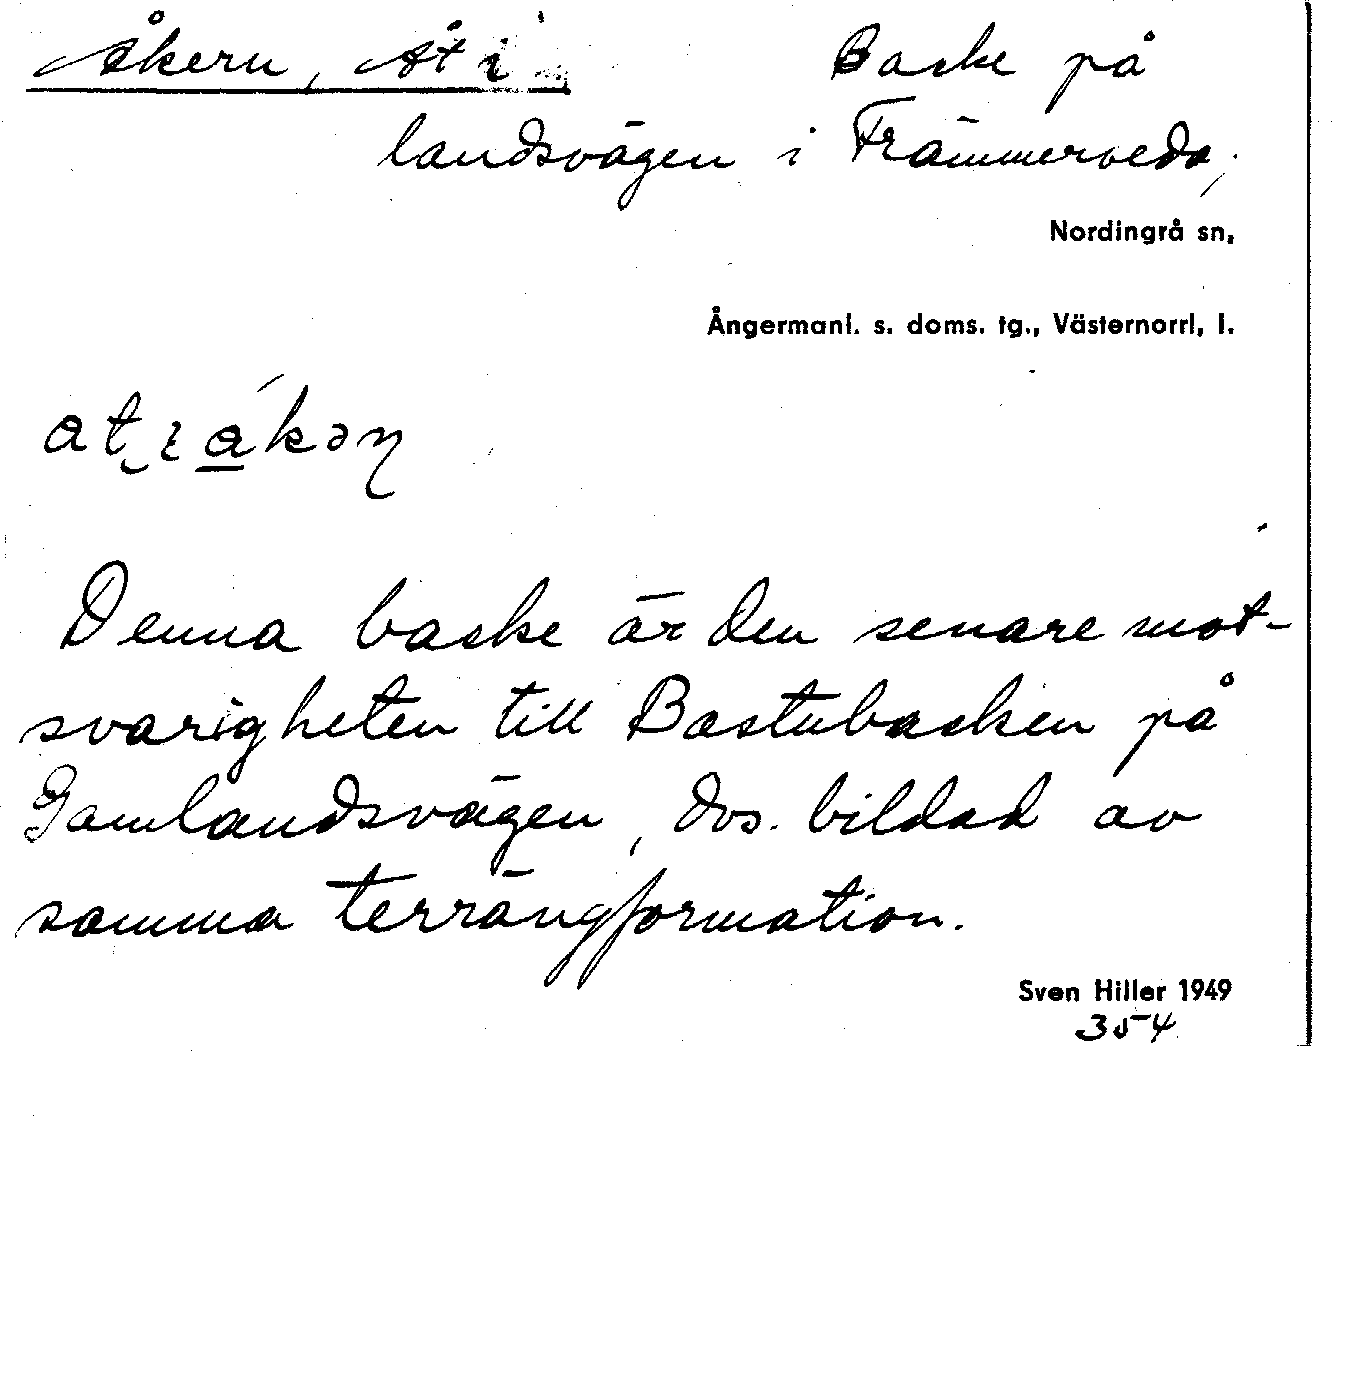 Åkern, Åt i Backe på
landsvägen i Främmerveda,
Nordingrå sn,
Ångermanl. s. doms. tg., Västernorrl, l.
Denna backe är den senare mot-
svarigheten till Bastubacken på
Gamlandsvägen, dvs. bildad av
samma terrängformation.
Sven Hiller 1949
354